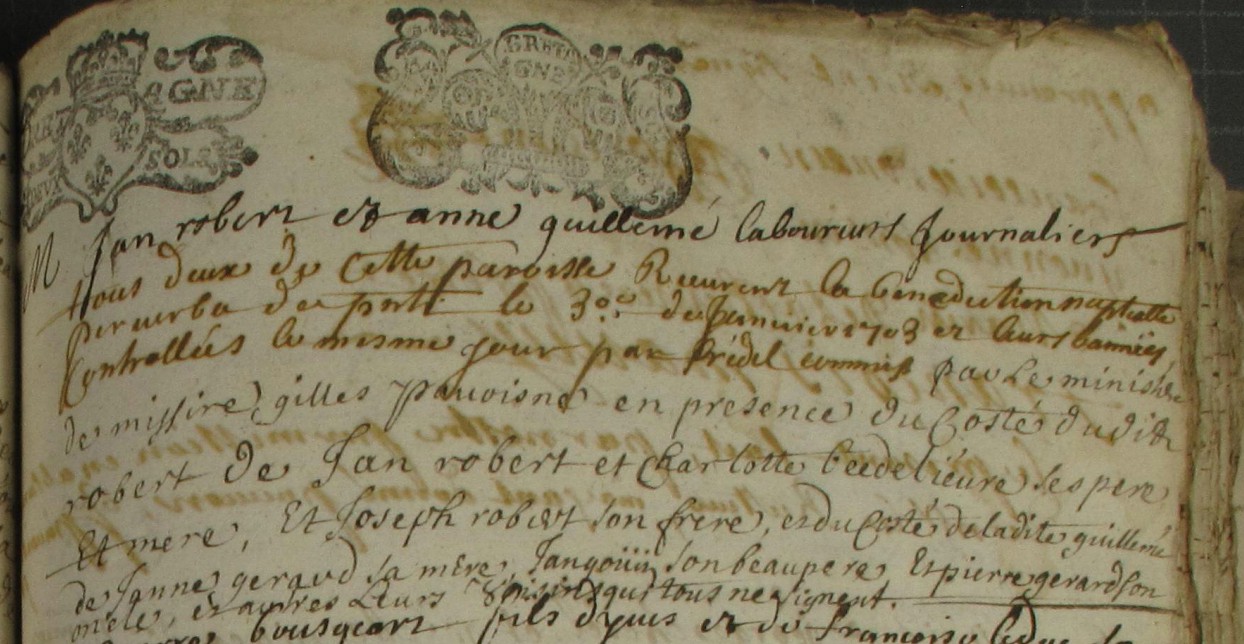 BRETAGNE
DEUX SOLS
BRETAGNE
M Jan robert et anne guillemé laboureurs Journaliers
tous deux de Cette paroisse Receurent la benediction nuptialle
per verba de pnti. le 30e. de Januier 1703 et leurs bannies
Controllées le mesme jour par fridel commis par Le ministere
de missire gilles pauoisne en presence du Costé dudit
robert de Jan robert et Charlotte beedelieure ses pere
Et mere, Et Joseph robert son frere, et du Costé de ladite guillemé
de Janne geraud sa mere, Jan goüin son beaupere Et pierre gerard son
oncle, et autres Leurs Voisins qui tous ne signent.
bousquart fils d'yuis et de francoise